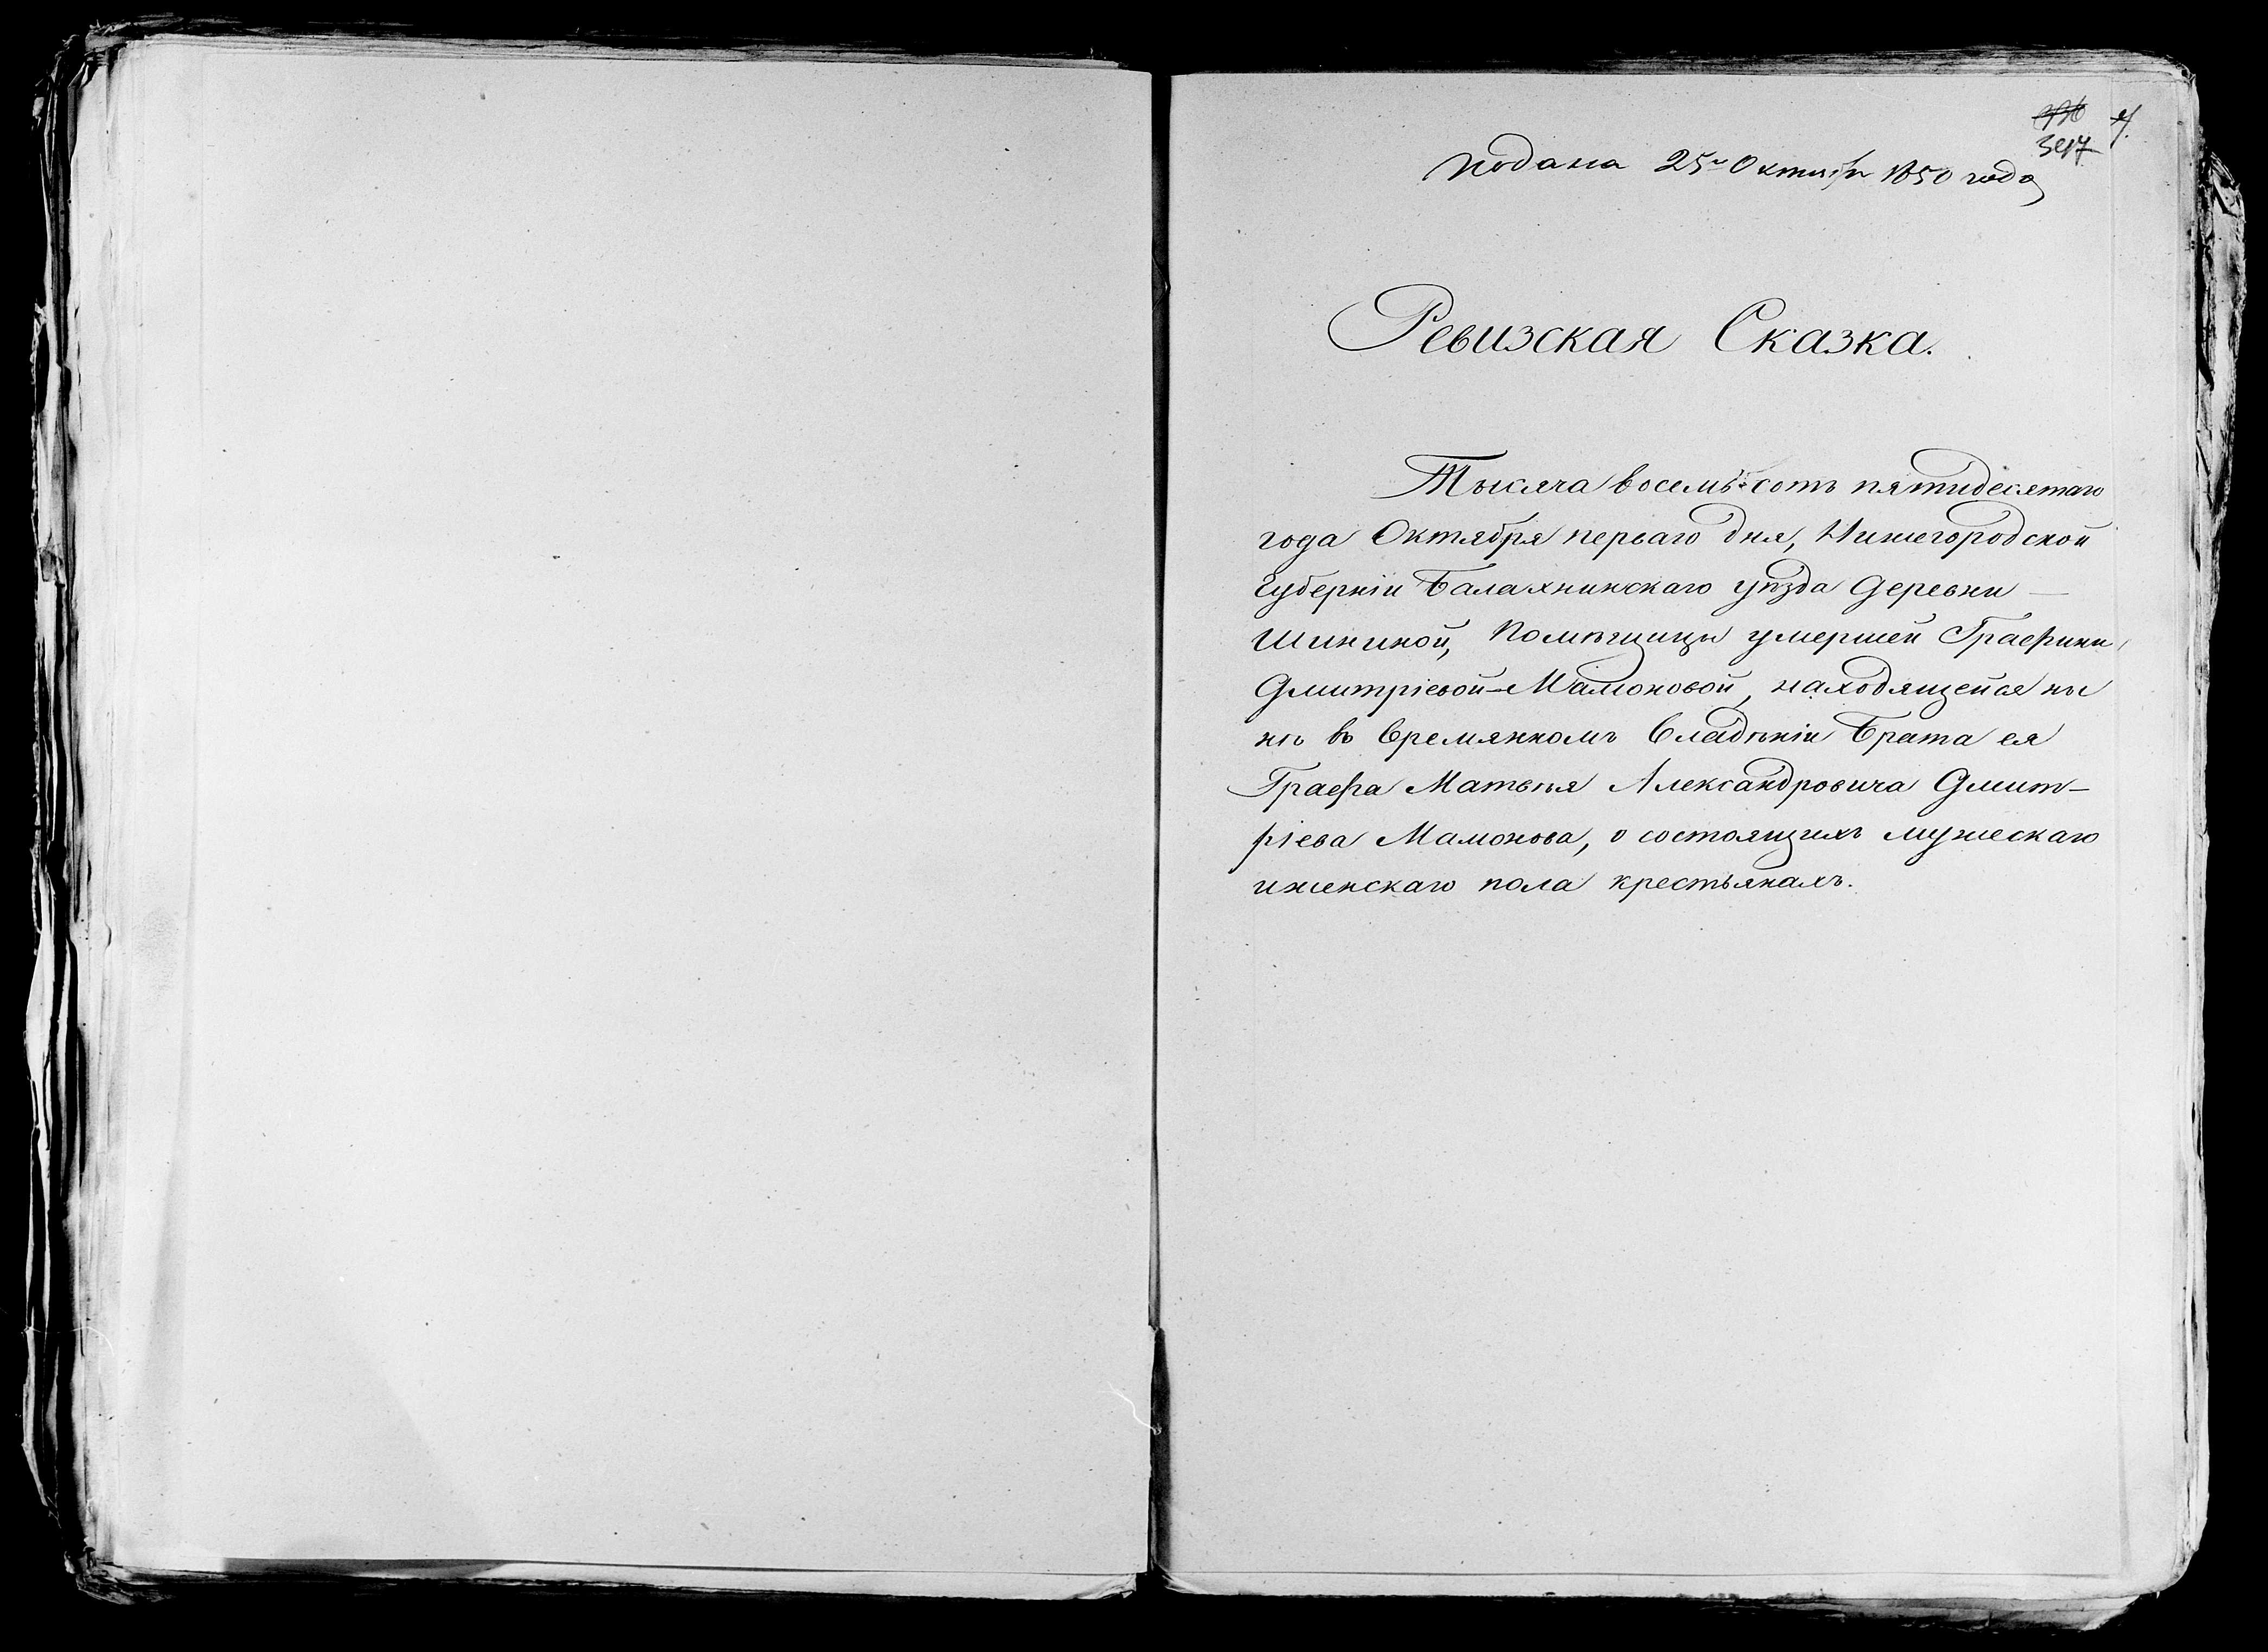 подана 25го Октября 1850 года
Ревизская Сказка.
Тысяча восемь сотъ пятидесятаго
года Октября перваго дня, Нижегородской
Губерніи Балахнинскаго уѣзда Деревни
Шининой, Помѣщицы умершей Графини
Дмитріевой-Мамоновой, находящейся ны
нѣ въ Времянномъ Владѣніи Брата ея
Графа Матвѣя Александровича Дмит-
ріева Мамонова, о состоящихъ мужескаго
иженскаго пола крестьянахъ.